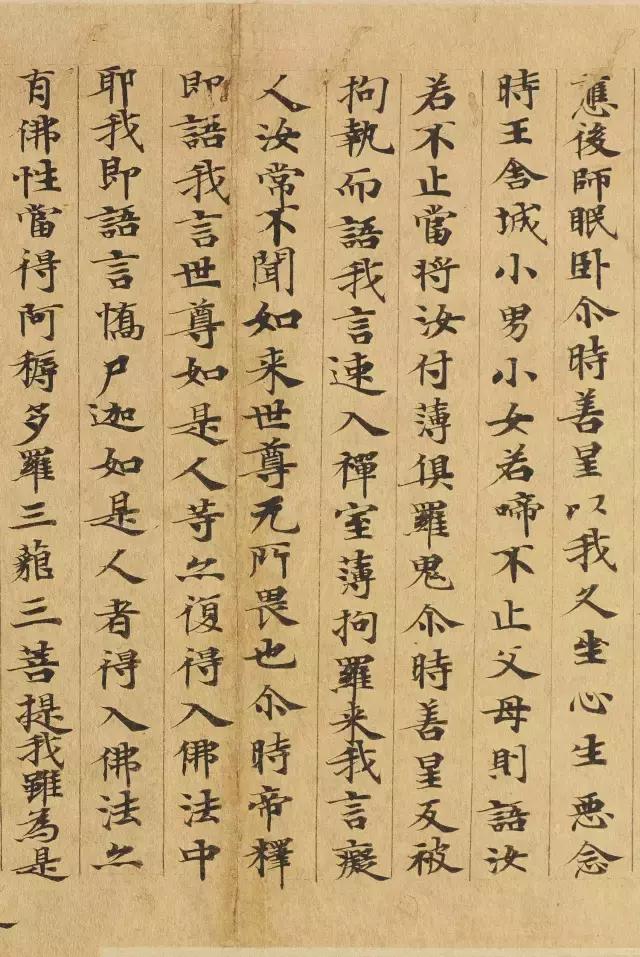 應後師眠卧尒時善星以我久坐心生惡念
時王舍城小男小女若啼不止父母則語汝
若不止當将汝付薄俱羅鬼尒時善星反被
拘執而語我言速入禪室薄拘羅来我言癡
人汝常不聞如来世尊无所畏也尒時帝釋
即語我言世尊如是人等亦復得入佛法中
耶我即語言憍尸迦如是人者得入佛法亦
有佛性當得阿耨多羅三藐三菩提我雖為是